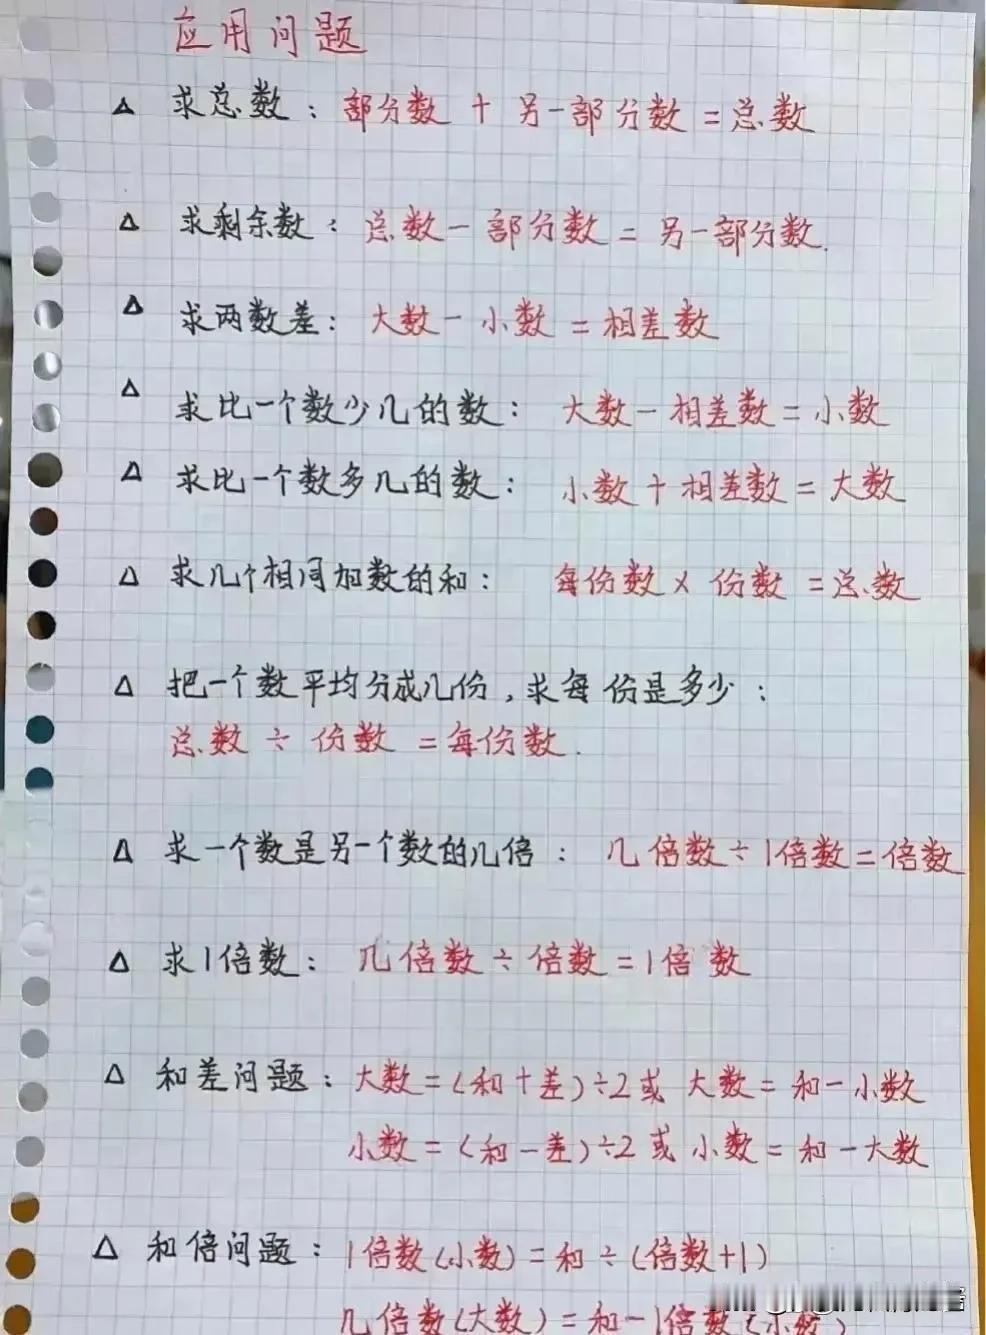 应用问题
△ 求总数：部分数＋另一部分数＝总数
△ 求剩余数：总数－部分数＝另一部分数.
△ 求两数差：大数－小数＝相差数
△ 求比一个数少几的数：大数－相差数＝小数
△ 求比一个数多几的数：小数＋相差数＝大数
△ 求几个相同加数的和：每份数×份数＝总数
△ 把一个数平均分成几份，求每份是多少：
总数÷份数＝每份数.
△ 求一个数是另一个数的几倍：几倍数÷1倍数＝倍数
△ 求1倍数：几倍数÷倍数＝1倍数
△ 和差问题：大数＝(和＋差)÷2或 大数＝和－小数
小数＝(和－差)÷2或 小数＝和－大数
△ 和倍问题：1倍数(小数)＝和÷(倍数+1)
几倍数(大数)＝和－1倍数(小数)